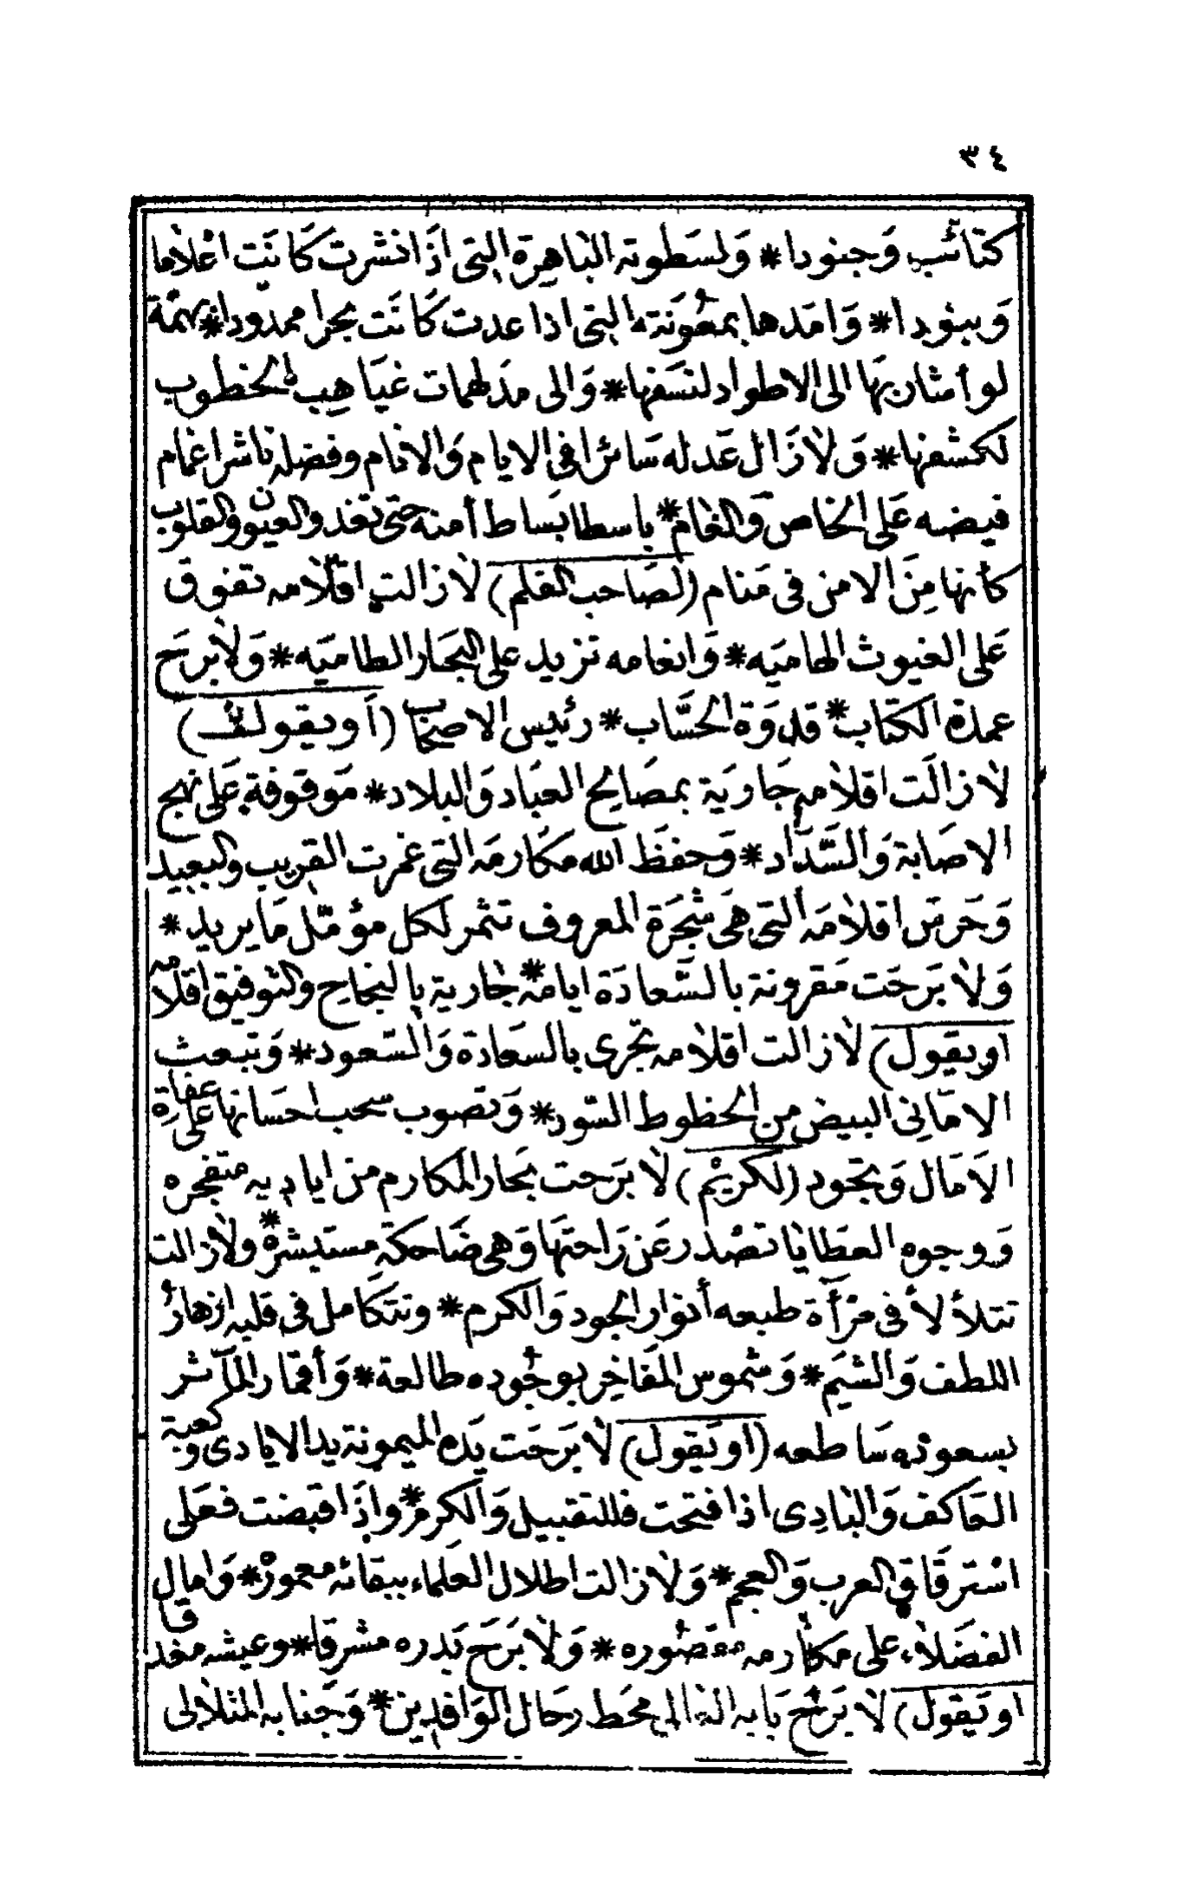 ٣٤
كتائب وَجنودا * وَلسَطوته الباهِرة التى اذَا نشرت كَانَت اعْلاما
وَبنودا * وَامَدها بمعُونَته التى اذا عدت كَانَت بحرا ممدودا * بهمّة
لو أمثان بهَا الى الاطواد لنسَفها * وَالى مدَلهمات غيَاهِب الخطوب
لكشفها * وَلاَزَال عَدله سَائرا فى الايام وَالانام وفضله ناشرا غمام
فيضه عَلى الخاص وَالعَام * باسطا بسَاط أمنه حتى تغدو العيون والقلوب
كأنها مِنَ الامن فى مَنام (لصَاحب القلم) لازالت اقلامه تفوق
عَلى الغيوث الهاميَه * وَانعامه تزيد على البحَار الطاميَه * وَلاَبرَح
عمدة الكتاب * قدوَة الحسَّاب * رئيس الاصحاب (اَو يقول)
لازالَت اقلامه جَاريَة بمصَالح العبَاد وَالبلاد * مَوقوفة عَلى نهج
الاصَابة وَالسَّدَاد * وَحفظَ الله مكَارمَه التى غمرت القريب والبعيد
وَحَرسَ اقلامَه التى هىَ شجَرَة المعروف تثمر لكل مؤمّل مَا يريد *
وَلاَبَرحَت مَقرونة بالسَّعادَة ايامه * جَارية بالنجاح والتوفيق اقلامه
(او يقول) لازالت اقلامه تجرى بالسعادة وَالسّعود * وَتبعث
الامَانى البيض من الحظوط السّود * وَتصوب سحب احسَانها عَلى عفاة
الاَمَال وَتجود (لكريْم) لاَبَرحت بحَار المكارم من اياديه متفجره
وَوجوه العطايا تصْدر عَن رَاحتهَا وَهى ضَاحكة مستبشرة * ولازالت
تتلألأ فى مرْآة طبعه أنوار الجود وَالكرم * وتتكامل فى قلبه ازهارُ
اللطف وَالشيَم * وَشموس المفَاخِر بوجُوده طالعة * وَأقمار المآثر
بسعوده سَاطعه (او يَقول) لاَبَرحَت يَده الميمونة يدا الايادى وكعبة
العَاكف وَالبَادِى اذا فتحت فللتقبيل وَالكرم * واِذَا قبضت فعَلى
استرقَاق العرب وَالعجم * وَلاَزالت اطلال العلماء ببقائه معمورْ * وَامال
الفضَلاء على مكارمه مقصُوره * وَلاَبَرحَ بَدره مشرقا * وعيشه مغدقا
(او يَقول) لاَبَرحَ بَابه العالى محَط رحَال الوَافدين * وَجنابه المتلالى